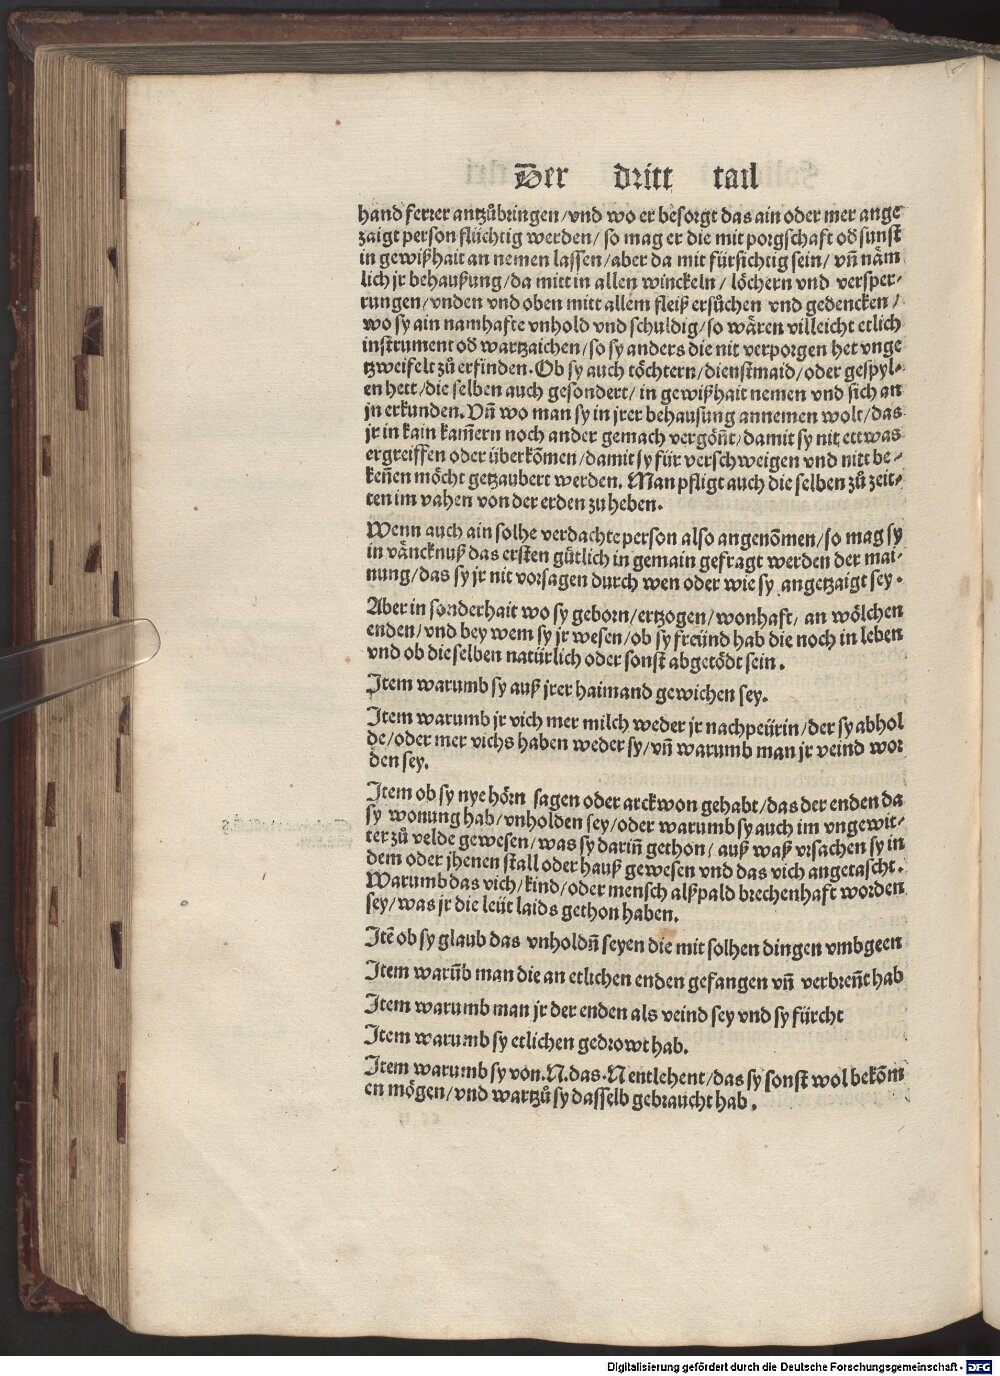 Der dritt tail
hand ferrer antzůbringen/vnd wo er besorgt das ain oder mer ange
zaigt person flüchtig werden/ so mag er die mit porgschaft od sunst
in gewißhait an nemen lassen/aber da mit fürsichtig sein/ vñ näm
lich jr behaußung/da mitt in allen winckeln/ löchern vnd versper⸗
rungen/vnden vnd oben mitt allem fleiß ersůchen vnd gedencken/
wo sy ain namhafte vnhold vnd schuldig/so wären villeicht etlich
instrument od wartzaichen/so sy anders die nit verporgen het vnge
tzweifelt zů erfinden. Ob sy auch töchtern/dienstmaid/oder gespyl⸗
en hett/die selben auch gesondert/in gewißhait nemen vnd sich an
jn erkunden. Vñ wo man sy in jrer behausung annemen wolt/das
jr in kain kam̄ern noch ander gemach vergöñt/damit sy nit ettwas
ergreiffen oder überkōmen/damit sy für verschweigen vnd nitt be⸗
keñen möcht getzaubert werden. Man pfligt auch die selben zů zeit⸗
ten im vahen von der erden zu heben.
Wenn auch ain solhe verdachte person also angenōmen/so mag sy
in väncknuß das ersten gütlich in gemain gefragt werden der mai⸗
nung/das sy jr nit vorsagen durch wen oder wie sy angetzaigt sey.
Aber in sonderhait wo sy geborn/ertzogen/wonhaft/ an wölchen
enden/vnd bey wem sy jr wesen/ob sy freünd hab die noch in leben
vnd ob die selben natürlich oder sonst abgetödt sein.
Item warumb sy auß jrer haimand gewichen sey.
Item warumb jr vich mer milch weder jr nachpeürin/der sy abhol
de/oder mer vichs haben weder sy/vñ warumb man jr veind wor
den sey.
Item ob sy nye hörn sagen oder arckwon gehabt/das der enden da
sy wonung hab/vnholden sey/oder warumb sy auch im vngewit⸗
ter zů velde gewesen/was sy dariñ gethon/ auß waß vrsachen sy in
dem oder jhenen stall oder hauß gewesen vnd das vich angetascht.
Warumb das vich/kind/oder mensch alßpald brechenhaft worden
sey/was jr die leüt laids gethon haben.
Itē ob sy glaub das vnholdñ seyen die mit solhen dingen vmbgeen
Item warūb man die an etlichen enden gefangen vñ verbreñt hab
Item warumb man jr der enden als veind sey vnd sy fürcht
Item warumb sy etlichen gedrowt hab.
Item warumb sy von .N. das .N entlehent/das sy sonst wol bekōm
en mögen/vnd wartzů sy dasselb gebraucht hab.
Digitalisierung gefördert durch die Deutsche Forschungsgemeinschaft - DFG